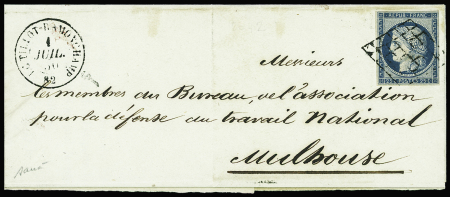 LE THILLOT-RAMONCHAMP
1
JUIL.
50
82
REPUB. FRANC.
25 POSTES 25
Messieurs
les membres du Bureau, de l'association
pour la défense du travail National
Mulhouse